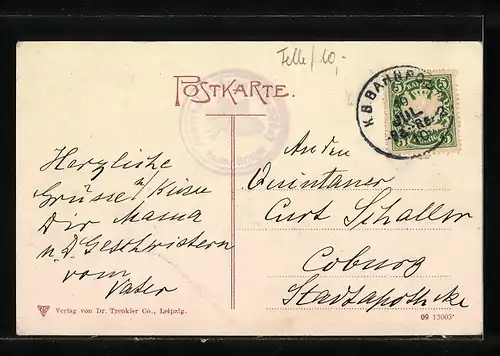 Felle / 10,-
POSTKARTE.
K.B.BAHNPOST
JUL
5 5
5 5
Herzliche
Grüsse u Küsse
Dir Mama
u. D. Geschwistern
vom
Vater
An den
Quintaner
Curt Schaller
Coburg
Stadtapotheke
Verlag von Dr. Trenkler Co., Leipzig.
09 13003